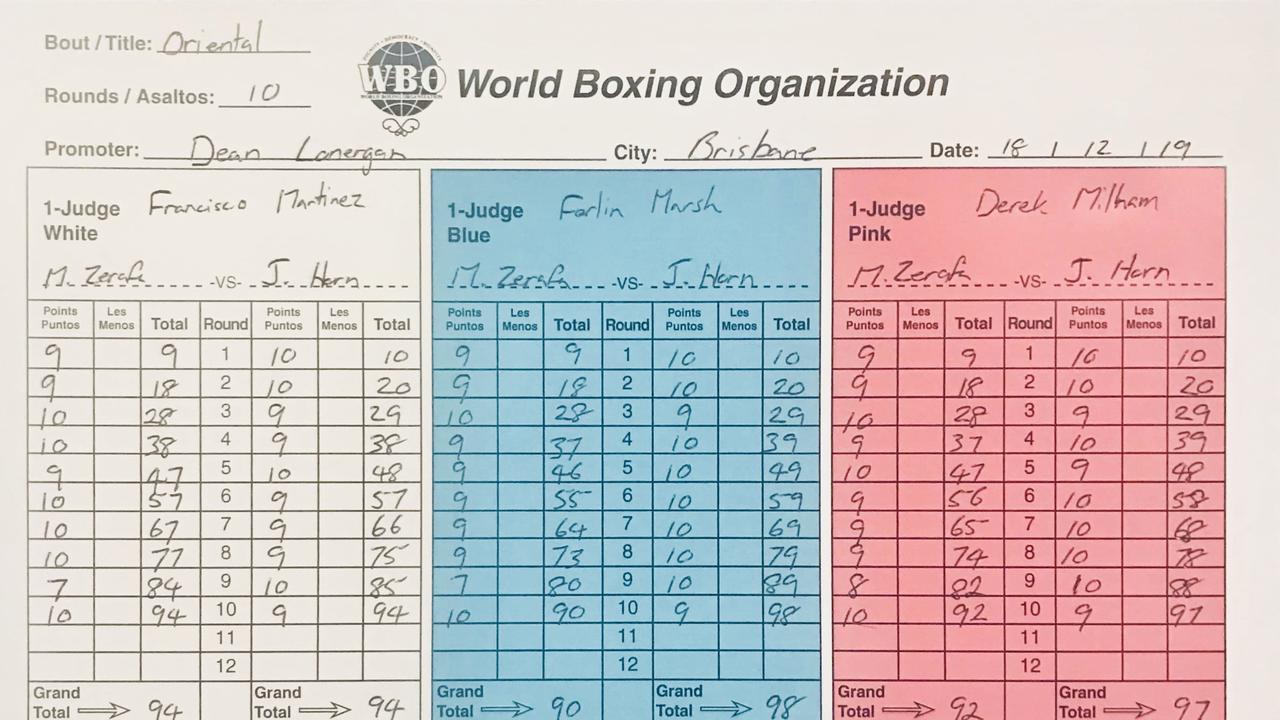 Bout / Title: Oriental
WBO World Boxing Organization
Rounds / Asaltos: 10
Promoter: Dean Lonergan City: Brisbane Date: 18 / 12 / 19
1-Judge White Francisco Martinez
M. Zerafa -VS- J. Horn
Points Puntos Les Menos Total Round Points Puntos Les Menos Total
9 9 1 10 10
9 18 2 10 20
10 28 3 9 29
10 38 4 9 38
9 47 5 10 48
10 57 6 9 57
10 67 7 9 66
10 77 8 9 75
7 84 9 10 85
10 94 10 9 94
11
12
Grand Total 94 Grand Total 94
1-Judge Blue Farlin Marsh
M. Zerafa -VS- J. Horn
Points Puntos Les Menos Total Round Points Puntos Les Menos Total
9 9 1 10 10
9 18 2 10 20
10 28 3 9 29
9 37 4 10 39
9 46 5 10 49
9 55 6 10 59
9 64 7 10 69
9 73 8 10 79
7 80 9 10 89
10 90 10 9 98
11
12
Grand Total 90 Grand Total 98
1-Judge Pink Derek Milham
M. Zerafa -VS- J. Horn
Points Puntos Les Menos Total Round Points Puntos Les Menos Total
9 9 1 10 10
9 18 2 10 20
10 28 3 9 29
9 37 4 10 39
10 47 5 9 48
9 56 6 10 58
9 65 7 10 68
9 74 8 10 78
8 82 9 10 88
10 92 10 9 97
11
12
Grand Total 92 Grand Total 97